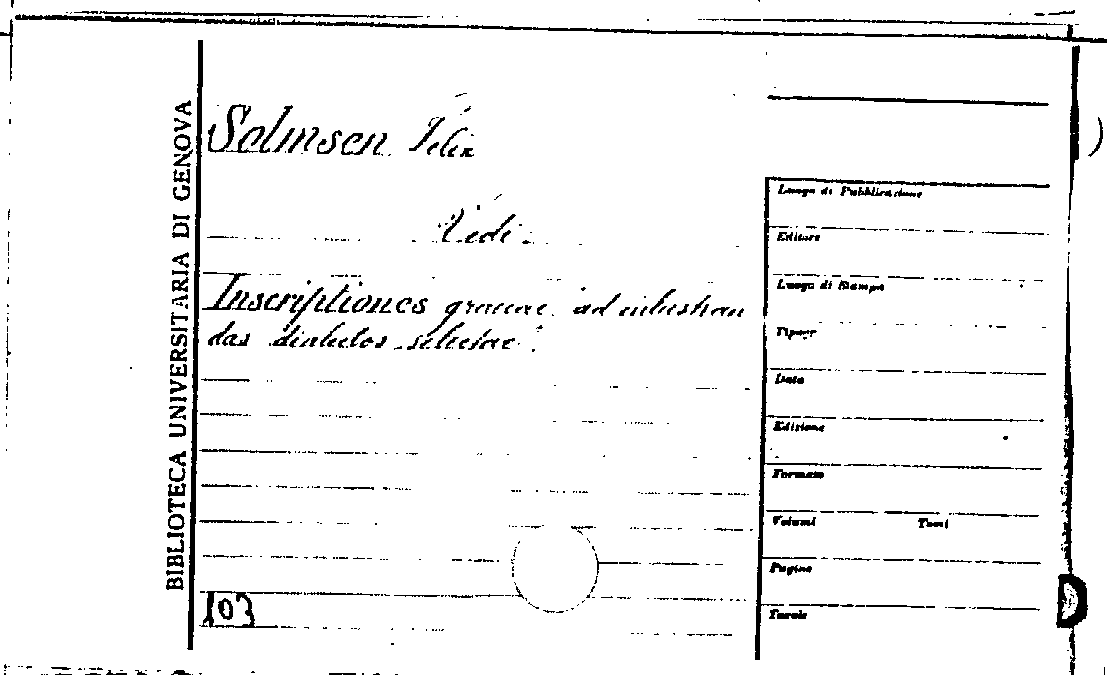 BIBLIOTECA UNIVERSITARIA DI GENOVA
Solmsen Felix
Vedi.
Inscriptiones graecae ad inlustran
das dialectos selectae.
103
Luogo di Pubblicazione
Editore
Luogo di Stampa
Tipogr
Data
Edizione
Formato
Volumi Tomi
Pagine
Tavole